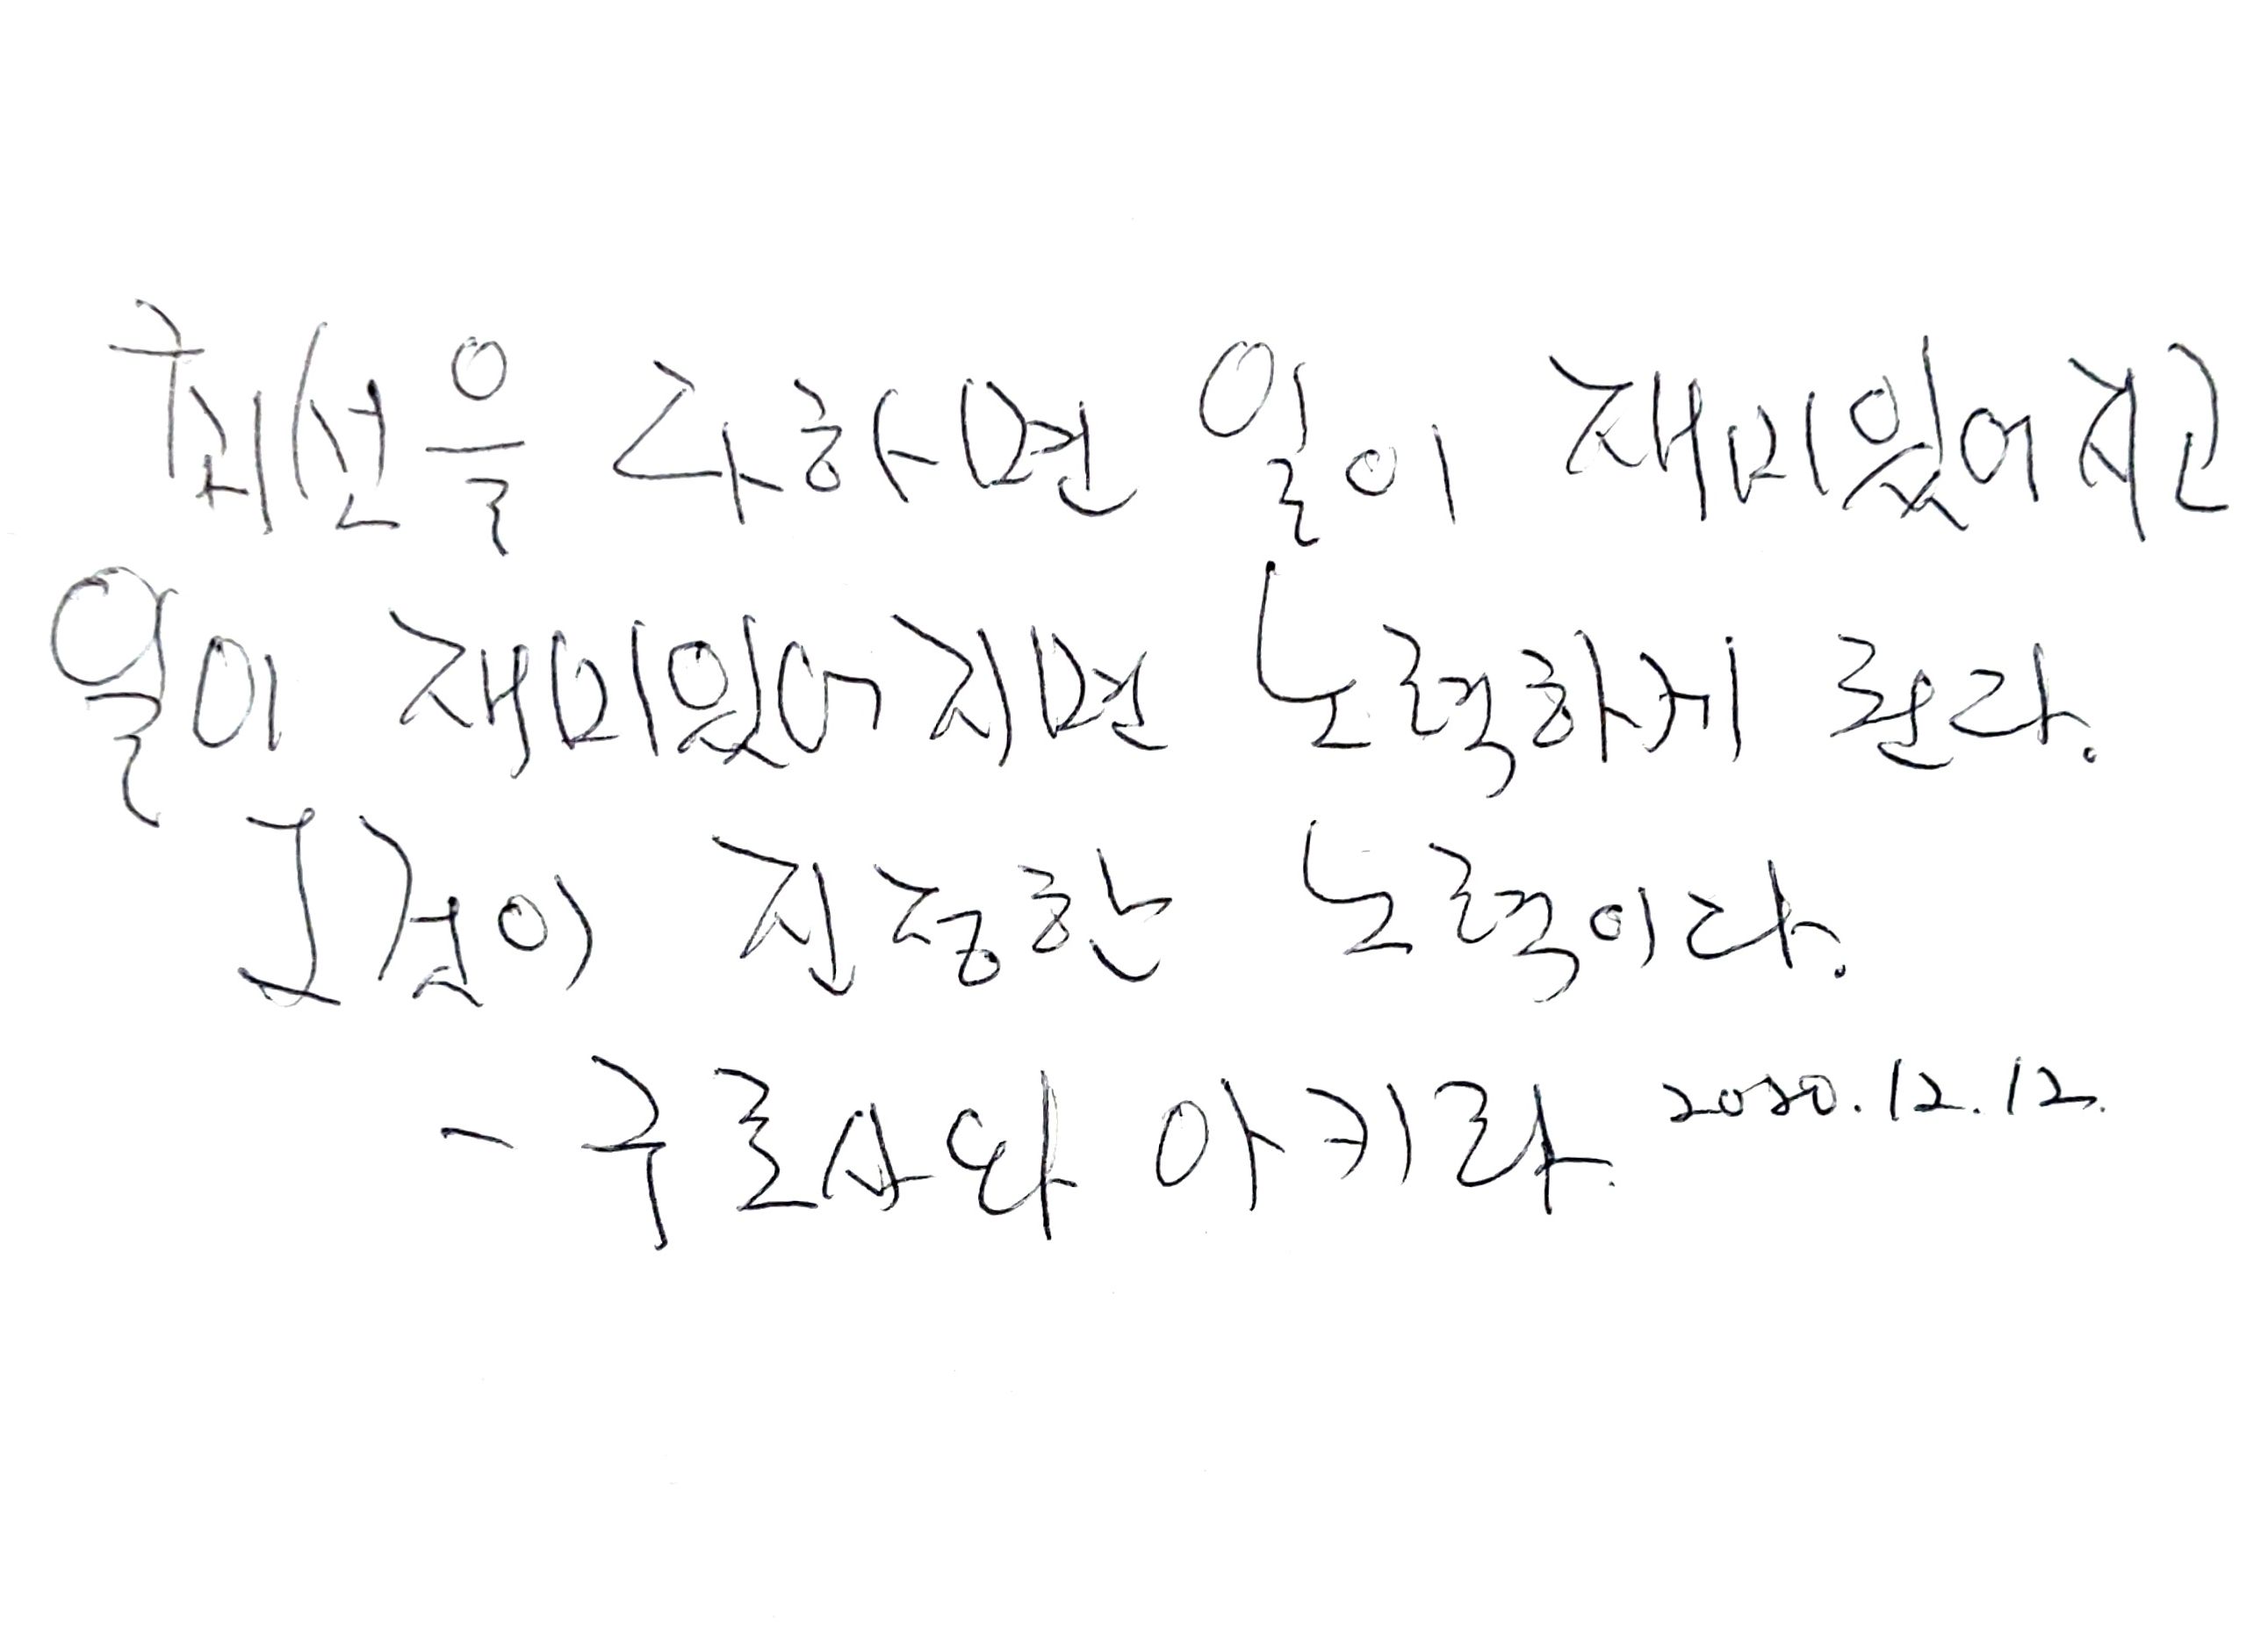 최선을 다하면 일이 재미있어진다
일이 재미있어지면 노력하게 된다.
그것이 진정한 노력이다.
- 구로사와 아키라. 2020.12.12.